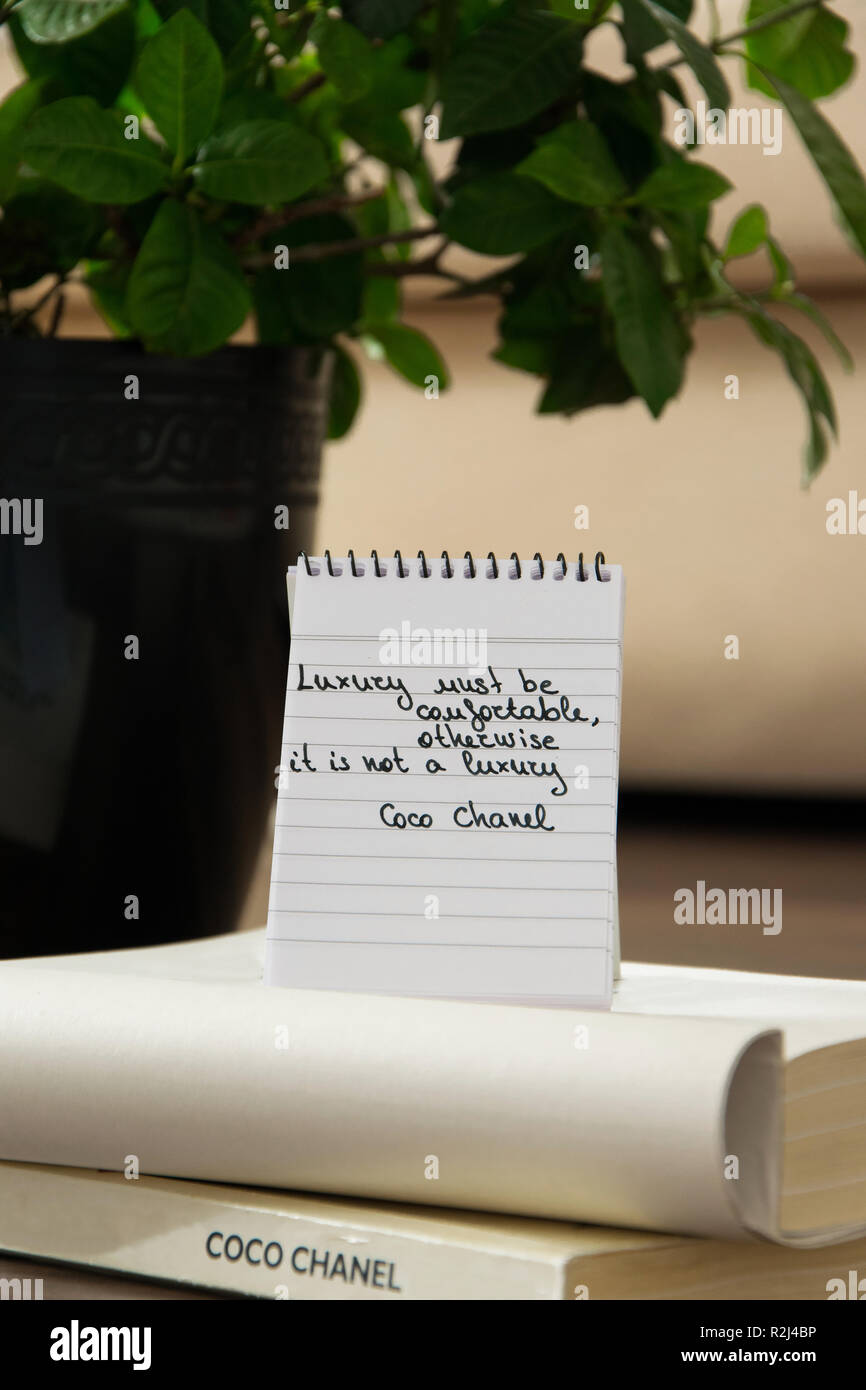 Luxury must be
comfortable,
otherwise
it is not a luxury
Coco Chanel
COCO CHANEL
alamy
Image ID: R2J4BP
www.alamy.com